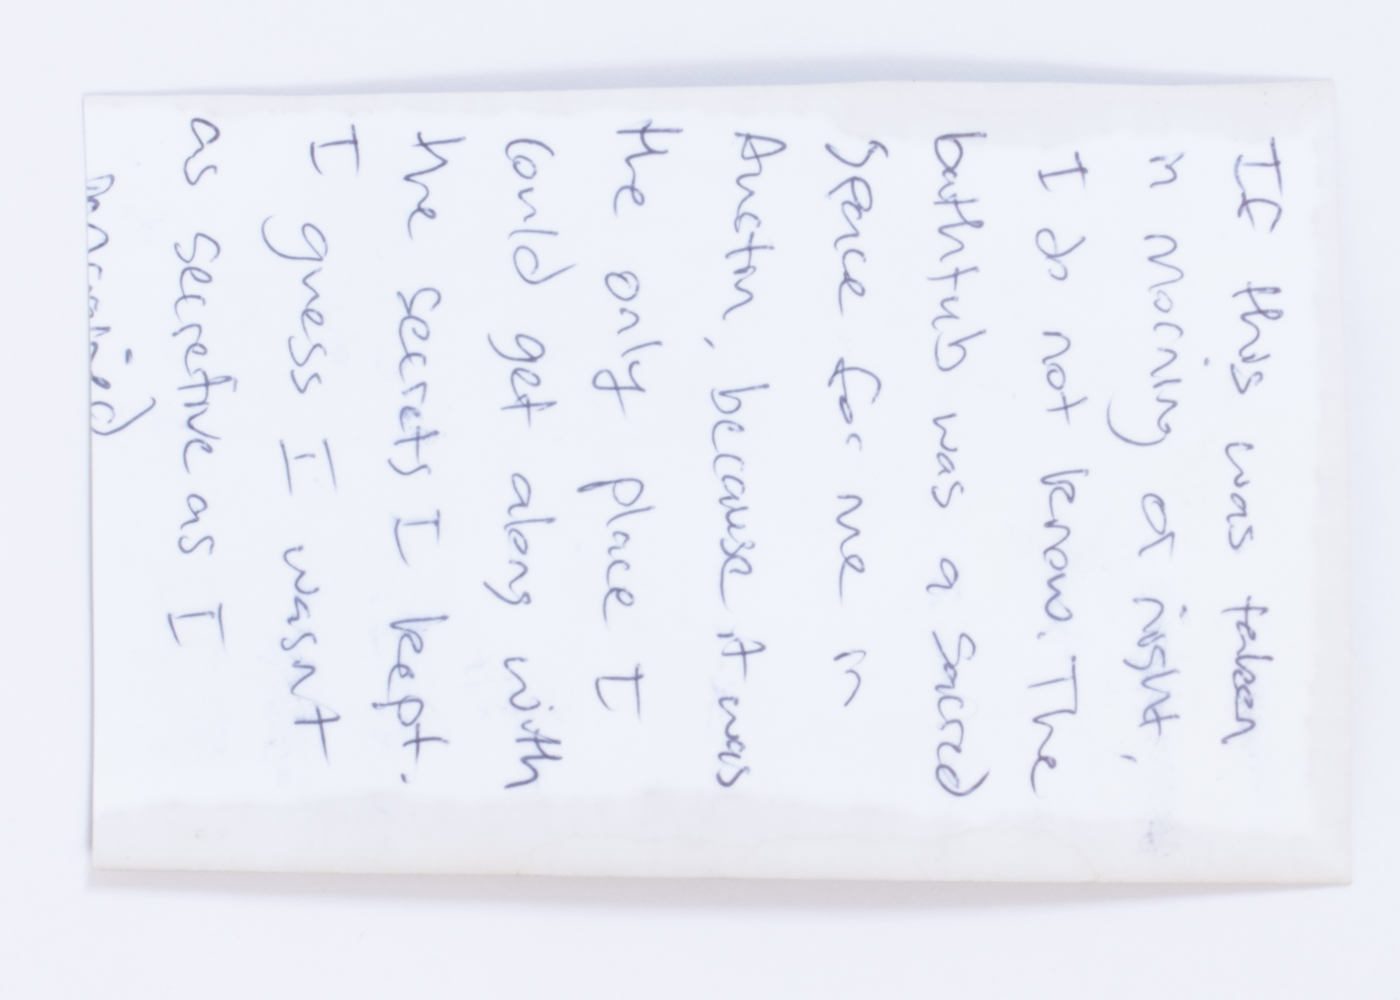 If this was taken
in morning or night,
I do not know. The
bathtub was a sacred
space for me in
Austin, because it was
the only place I
could get along with
the secrets I kept.
I guess I wasnt
as secretive as I